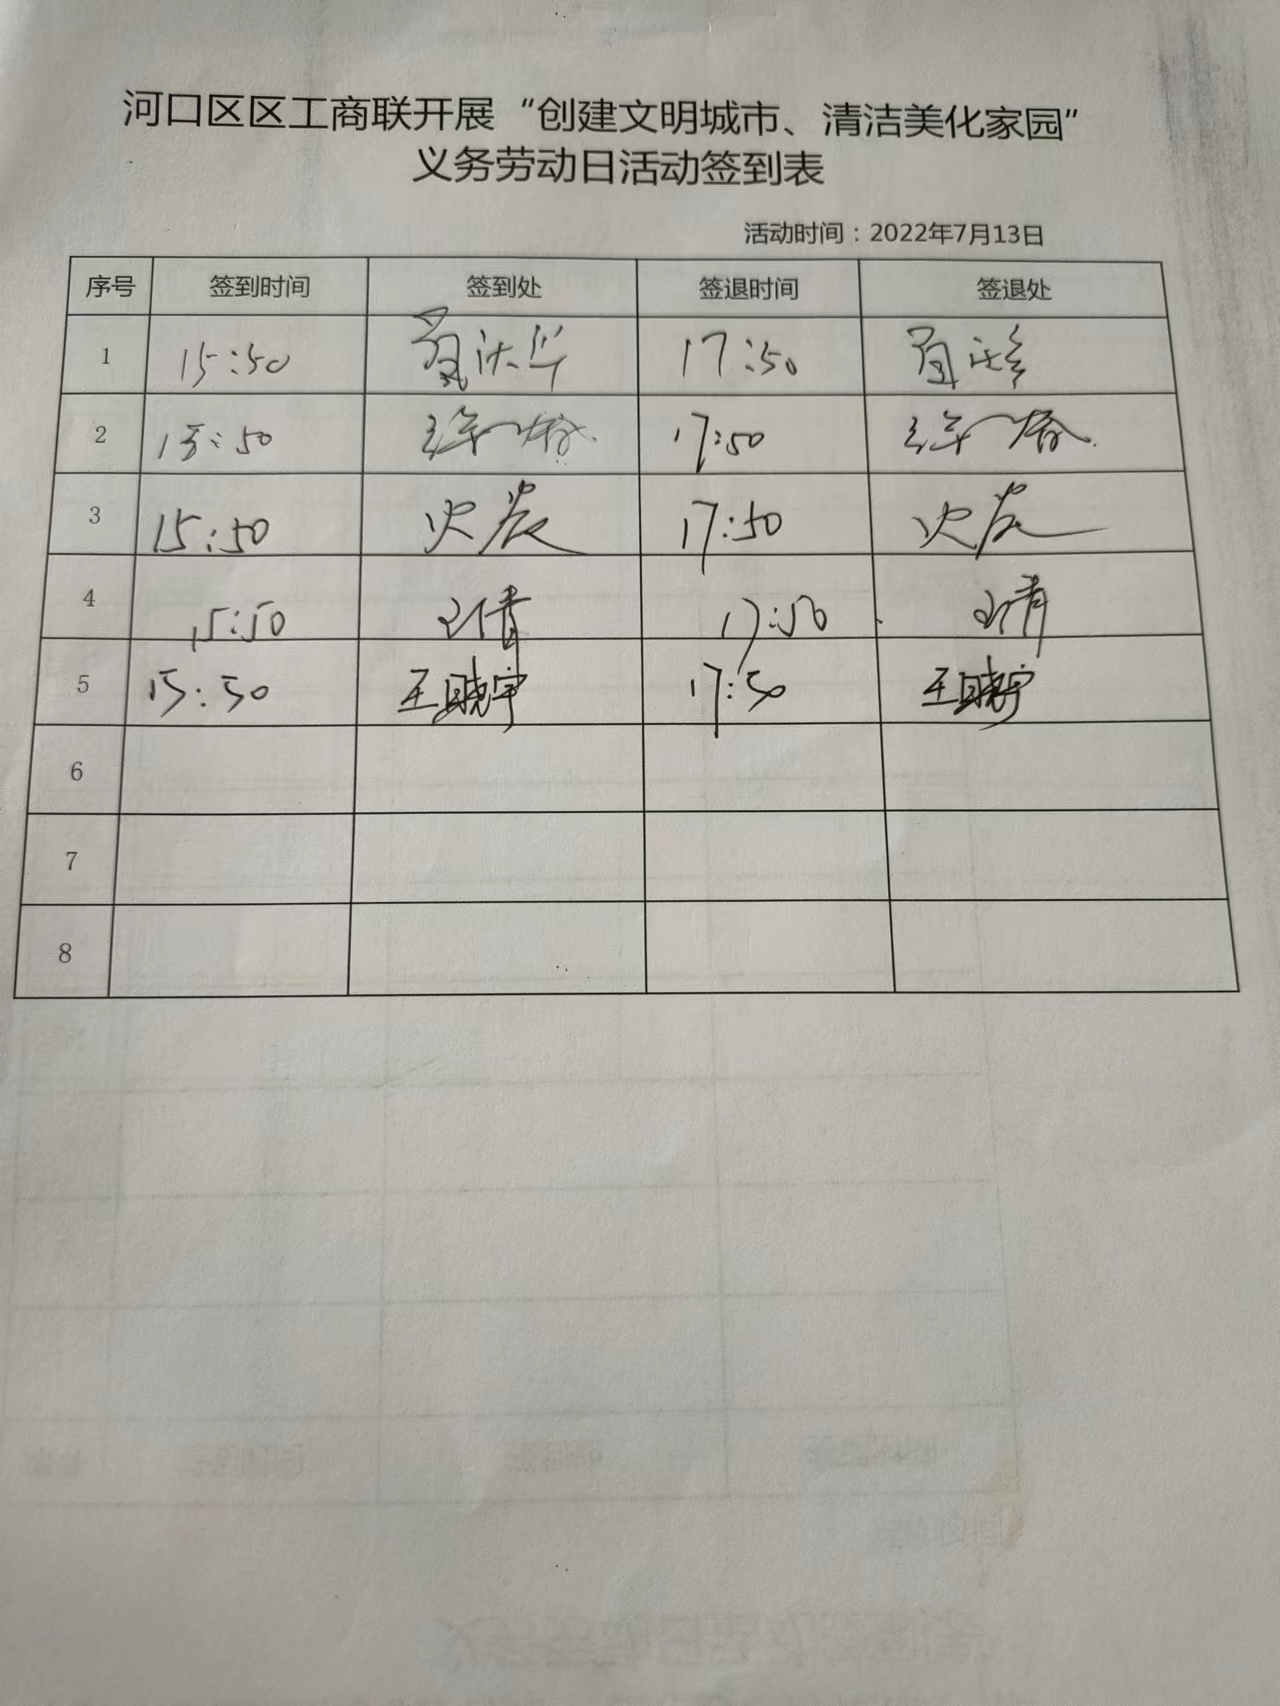 河口区区工商联开展“创建文明城市、清洁美化家园”
义务劳动日活动签到表
活动时间：2022年7月13日
序号 签到时间 签到处 签退时间 签退处
1 15:50 17:50
2 15:50 17:50
3 15:50 17:50
4 15:50 王倩 17:50 王倩
5 15:50 王晓宇 17:50 王晓宇
6
7
8